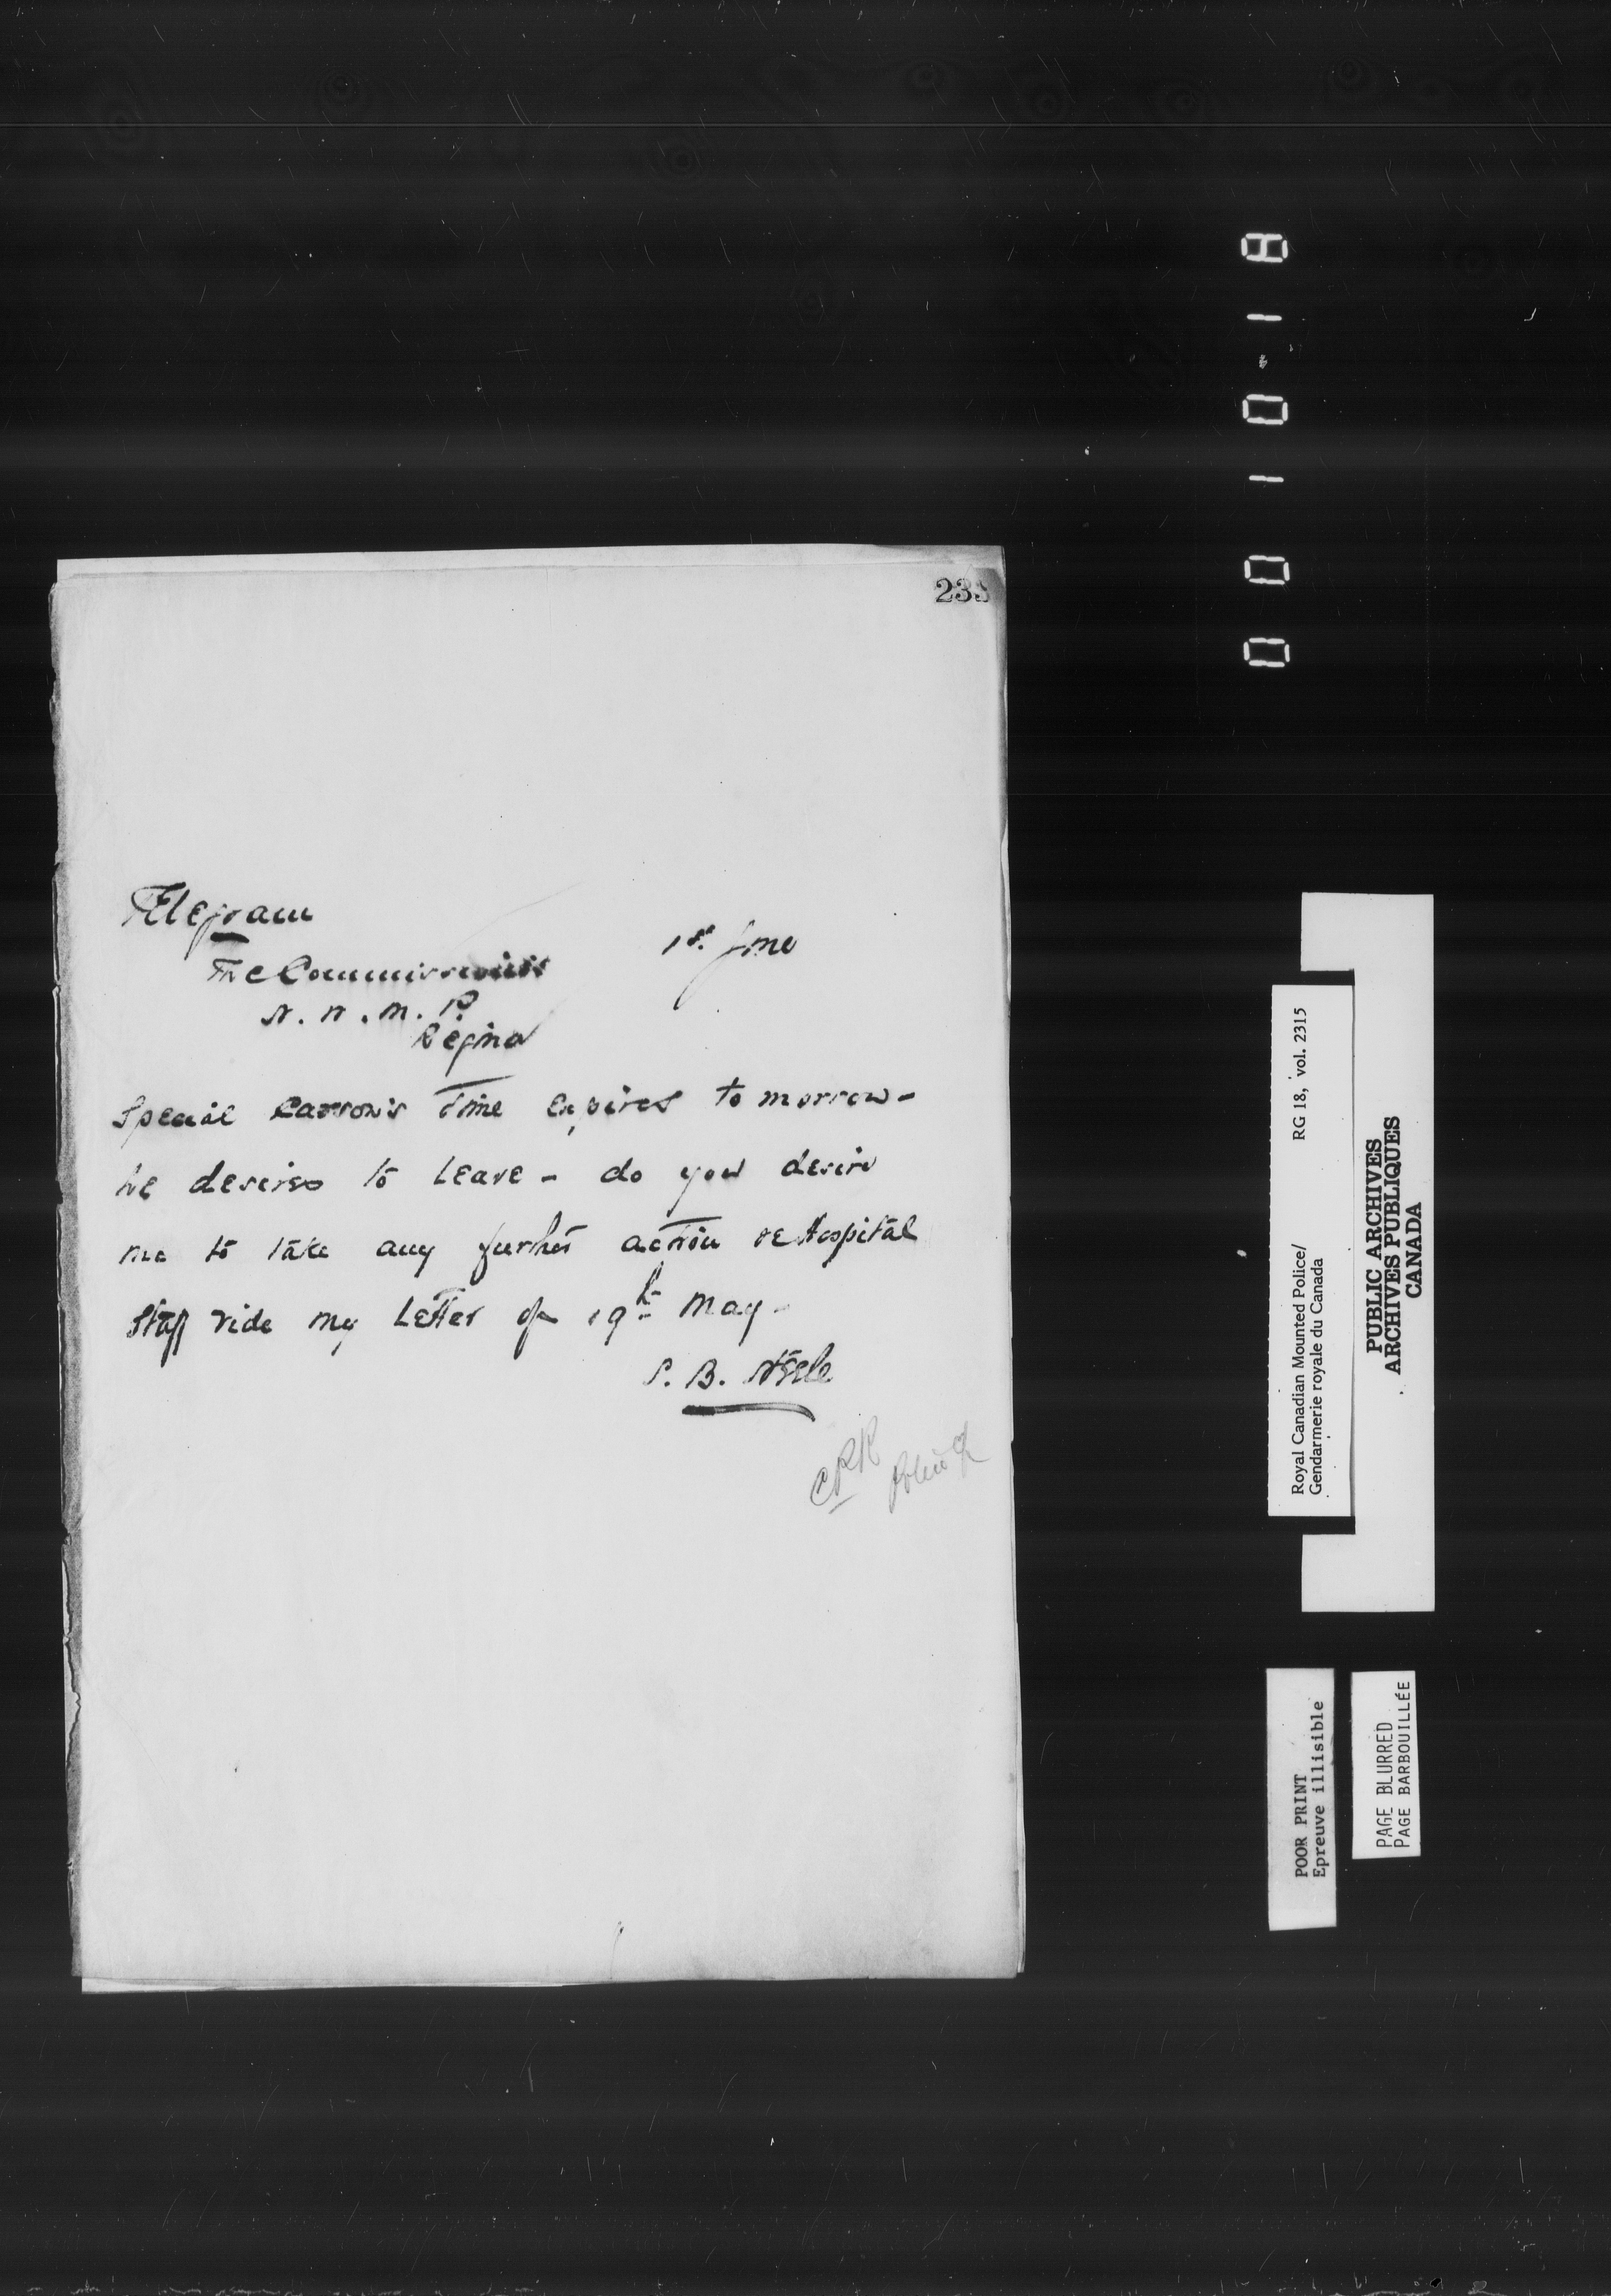 233
Telegram
1st June
The Commissioner
N. W. M. P.
Regina
Special Carson's time expires to morrow -
he desires to leave - do you desire
me to take any further action re Hospital
Staff vide my letter of 19th May -
S. B. Steele
CPR
Police
00101-18
Royal Canadian Mounted Police/ RG 18, vol. 2315
Gendarmerie royale du Canada
PUBLIC ARCHIVES
ARCHIVES PUBLIQUES
CANADA
POOR PRINT
Epreuve illisible
PAGE BLURRED
PAGE BARBOUILLÉE